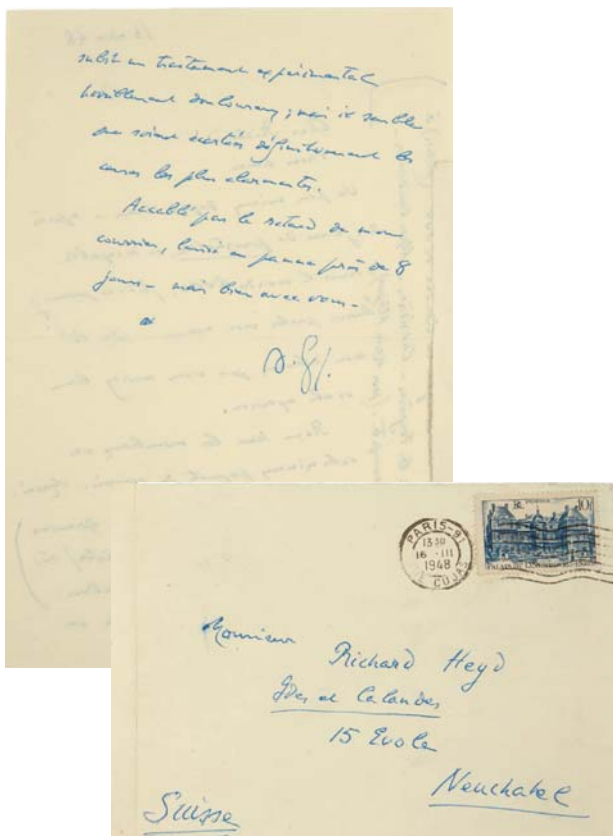 subit un traitement expérimental
horriblement douloureux ; mais il semble
que soient écartées définitivement les
causes les plus alarmantes.
Accablé par le retard de mon
courrier, laissé en panne près de 8
jours – mais bien avec vous –
A. G.
PARIS-91
13 30
16 -III
1948
CUJAS
10f
PALAIS DU LUXEMBOURG PARIS
Monsieur
Richard Heyd
Ides et Calendes
15 Evole
Neuchatel
Suisse